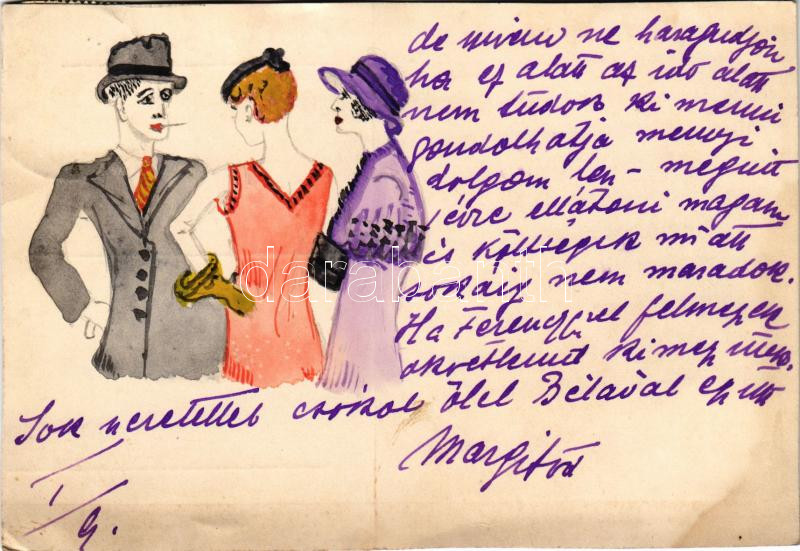 de nivem ne haragudjon
ha ez alatt az idő alatt
nem tudok ki menni
gondolhatja mennyi
dolgom len – megint
évre ellátni magam
és költségek miatt
sokáig nem maradok.
Ha Ferenczel felmegyek
okvetlenül ki megyünk.
Sok szeretettel csókol ölel Bélával együtt
Margitod
I/9.
darabanth